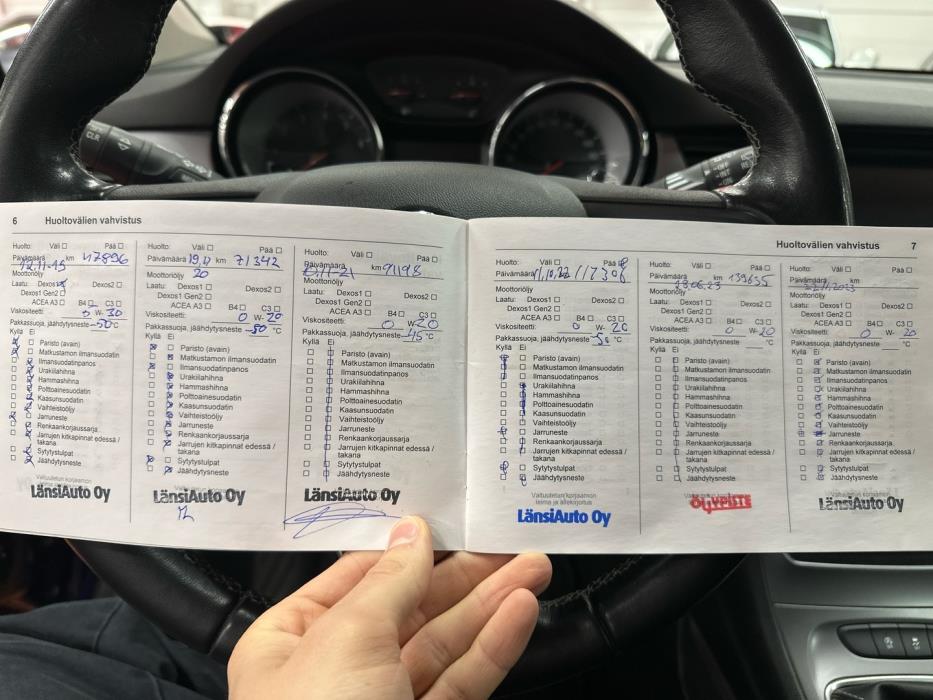 6 Huoltovälien vahvistus
Huolto: Väli ☐ Pää ☐
Päivämäärä 12.11-19 km 47896
Moottoriöljy
Laatu: Dexos1 Dexos2 ☐
Dexos1 Gen2 ☐
ACEA A3 ☐ B4 ☐ C3 ☐
Viskositeetti: 0 W- 30
Pakkassuoja, jäähdytysneste -50 °C
Kyllä Ei
Paristo (avain)
Matkustamon ilmansuodatin
Ilmansuodatinpanos
Urakiilahihna
Hammashihna
Polttoainesuodatin
Kaasunsuodatin
Vaihteistoöljy
Jarruneste
Renkaankorjaussarja
Jarrujen kitkapinnat edessä /
takana
Sytytystulpat
Jäähdytysneste
LänsiAuto Oy
Huolto: Väli ☐ Pää ☐
Päivämäärä 19,11 km 71342
Moottoriöljy 20
Laatu: Dexos1 ☐ Dexos2 ☐
Dexos1 Gen2 ☐
ACEA A3 ☐ B4 ☐ C3 ☐
Viskositeetti: 0 W- 20
Pakkassuoja, jäähdytysneste -50 °C
Kyllä Ei
Paristo (avain)
Matkustamon ilmansuodatin
Ilmansuodatinpanos
Urakiilahihna
Hammashihna
Polttoainesuodatin
Kaasunsuodatin
Vaihteistoöljy
Jarruneste
Renkaankorjaussarja
Jarrujen kitkapinnat edessä /
takana
Sytytystulpat
Jäähdytysneste
LänsiAuto Oy
Huolto: Väli ☐ Pää ☐
Päivämäärä km 91198
Moottoriöljy
Laatu: Dexos1 ☐ Dexos2 ☐
Dexos1 Gen2 ☐
ACEA A3 ☐ B4 ☐ C3 ☐
Viskositeetti: 0 W- 20
Pakkassuoja, jäähdytysneste -45 °C
Kyllä Ei
Paristo (avain)
Matkustamon ilmansuodatin
Ilmansuodatinpanos
Urakiilahihna
Hammashihna
Polttoainesuodatin
Kaasunsuodatin
Vaihteistoöljy
Jarruneste
Renkaankorjaussarja
Jarrujen kitkapinnat edessä /
takana
Sytytystulpat
Jäähdytysneste
LänsiAuto Oy
Huoltovälien vahvistus 7
Huolto: Väli ☐ Pää
Päivämäärä 11,10,22
Moottoriöljy
Laatu: Dexos1 ☐ Dexos2 ☐
Dexos1 Gen2 ☐
ACEA A3 ☐ B4 ☐ C3 ☐
Viskositeetti: 0 W- 20
Pakkassuoja, jäähdytysneste °C
Kyllä Ei
Paristo (avain)
Matkustamon ilmansuodatin
Ilmansuodatinpanos
Urakiilahihna
Hammashihna
Polttoainesuodatin
Kaasunsuodatin
Vaihteistoöljy
Jarruneste
Renkaankorjaussarja
Jarrujen kitkapinnat edessä /
takana
Sytytystulpat
Jäähdytysneste
Valtuutetun korjaamon
leima ja allekirjoitus
LänsiAuto Oy
Huolto: Väli ☐ Pää ☐
Päivämäärä 28.06.23 km 139655
Moottoriöljy
Laatu: Dexos1 ☐ Dexos2 ☐
Dexos1 Gen2 ☐
ACEA A3 ☐ B4 ☐ C3 ☐
Viskositeetti: 0 W- 20
Pakkassuoja, jäähdytysneste °C
Kyllä Ei
Paristo (avain)
Matkustamon ilmansuodatin
Ilmansuodatinpanos
Urakiilahihna
Hammashihna
Polttoainesuodatin
Kaasunsuodatin
Vaihteistoöljy
Jarruneste
Renkaankorjaussarja
Jarrujen kitkapinnat edessä /
takana
Sytytystulpat
Jäähdytysneste
ÖLJYPISTE
Huolto: Väli ☐ Pää ☐
Päivämäärä km
Moottoriöljy
Laatu: Dexos1 ☐ Dexos2 ☐
Dexos1 Gen2 ☐
ACEA A3 ☐ B4 ☐ C3 ☐
Viskositeetti: 0 W- 20
Pakkassuoja, jäähdytysneste °C
Kyllä Ei
Paristo (avain)
Matkustamon ilmansuodatin
Ilmansuodatinpanos
Urakiilahihna
Hammashihna
Polttoainesuodatin
Kaasunsuodatin
Vaihteistoöljy
Jarruneste
Renkaankorjaussarja
Jarrujen kitkapinnat edessä /
takana
Sytytystulpat
Jäähdytysneste
LänsiAuto Oy
CLR
OFF
INT